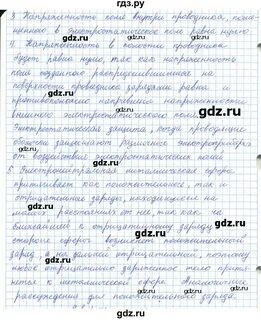 гдз.ру
3. Напряженность поля внутри проводника, поме-
щенного в электростатическое поле равна нулю.
4. Напряженность в полости проводника
будет равна нулю, так как напряженность
поля создаваемая распределившимися на
поверхности проводника зарядами равна и
противоположно направлена напряженности
внешнего электростатического поля.
Электростатическая защита, когда проводящие
оболочки защищают различные электроприборы
от воздействия электростатических полей
5. Электронейтральная металлическая сфера
притягивает как положительные, так и
отрицательные заряды, находящиеся на
расстоянии от нее, так как, на
ближайшей к отрицательному заряду
стороне сферы возникает положительный
заряд, а на дальней отрицательный, поэтому
любое отрицательно заряженное тело притя-
нется к металлической сфере. Аналогичные
рассуждения для положительного заряда.
gdz.ru
gdz.ru
gdz.ru
gdz.ru
gdz.ru
gdz.ru
gdz.ru
gdz.ru